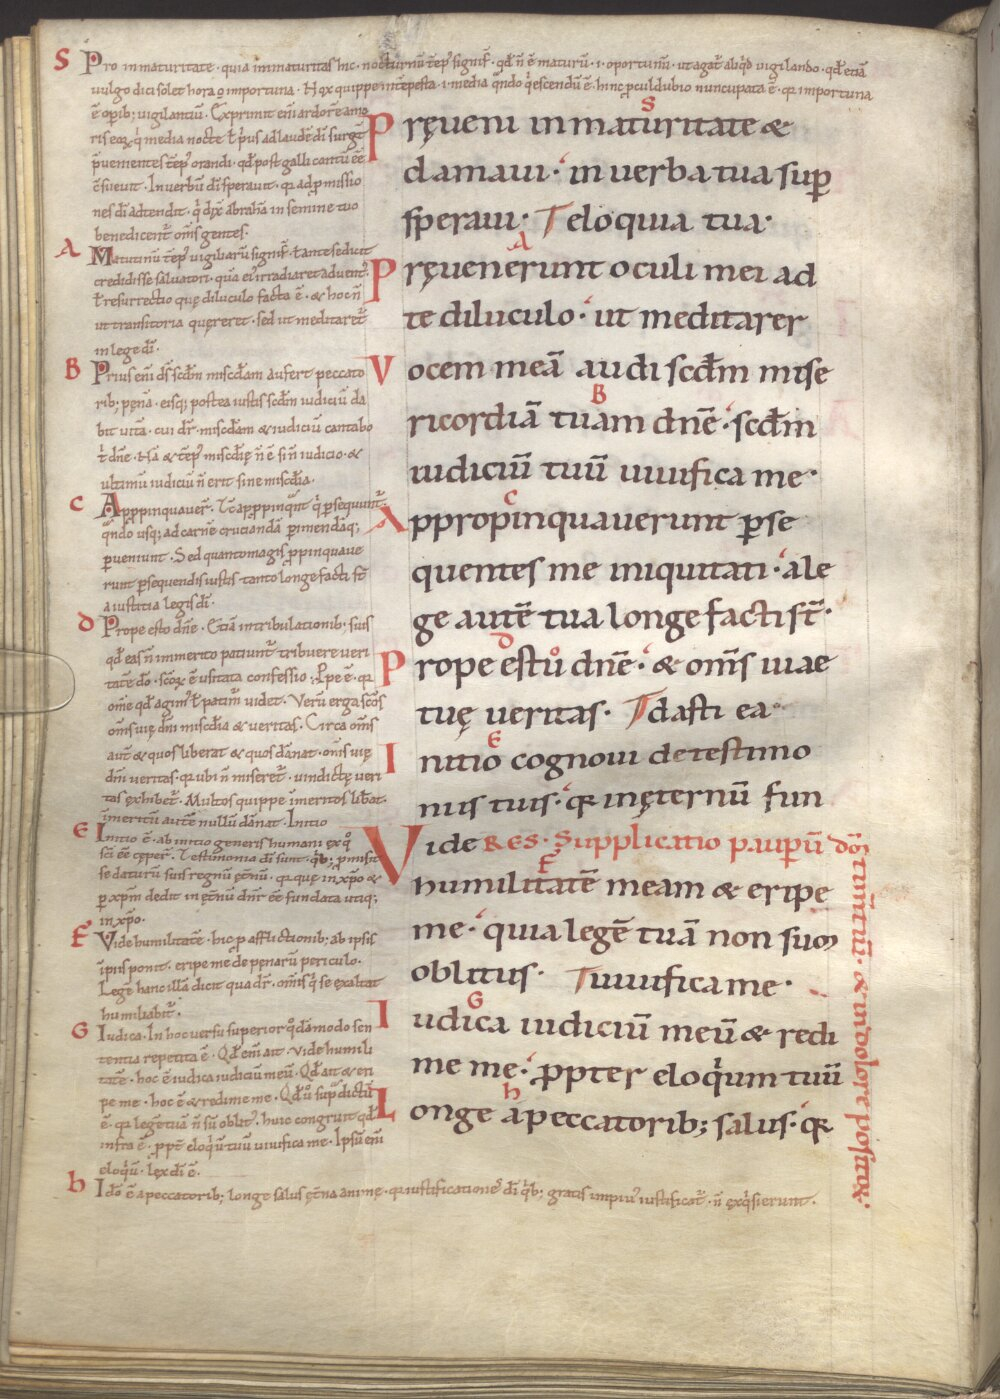 S Pro inmaturitate · quia inmaturitas hic · nocturnū tēp' signif̄ · qd̄ n̄ ē maturū · i · oportunū · ut agat̄ aliqd vigilando · qd̄ etiā
vulgo dici solet hora importuna · Nox quippe intēpesta · i · media qn̄do qescendū ē · hinc pculdubio nuncupata ē · qr importuna
ē opib; vigilantiū · Exprimit eni ardorē amo
ris eoꝝ q̇ media nocte ł prius ad laudē dī surgt̄
p̄uenientes tēp' orandi · qd̄ post galli cantū ēē
c̄sueuit · In verbū dī speravit · qr ad pmissio
nes dī adtendit · q̇ dix̄ abrahā in semine tuo
benedicent̄ om̄s gentes ·
A Matutinū tēp' vigiliarū signif̄ · ł ante se dicit
credidisse salvatori · quā ei' irradiaret advent'
ł resurrectio quę diluculo facta ē · & hoc n̄
ut transitoria quęreret · sed ut meditaret̄
in lege dī ·
B Prius eni ds̄ scdm misc̄dam aufert peccato
rib; pęnā · eisq; postea iustis scdm iudiciū da
bit vitā · cui dr̄ · misc̄dam & iudiciū cantabo
t̄ dn̄e · Nā & tēp' misc̄dię n̄ ē sī n̄ iudicio · &
ultimū iudiciū n̄ erit sine misc̄dia ·
C Apppinquauer̄ · Tc̄ apppinqn̄t q̇ psequunt̄ ·
qn̄do usq; ad carnē cruciandā pimendāq;
pveniunt · Sed quanto magis ppinquaue
runt psequendis iustis tanto longe facti st̄
a iustitia legis dī ·
d Prope esto dn̄e · Etiā in tribulationib; suis
qd̄ eas n̄ immerito patiunt̄ · tribuere veri
tatē dō · scōꝝ ē usitata confessio ; Ppe ē · qr
om̄e qd̄ agim' ł patim' videt · Verū erga scōs
om̄s vię dn̄i misc̄dia & veritas · Circa om̄s
aut̄ & quos liberat & quos dānat · om̄s vię
dn̄i veritas · qr ubi n̄ miseret̄ · vindictę veri
tas exhibet̄ · Multos quippe īmeritos lib̄at ·
īmeritū autē nullū dānat · Initio
E Initio ē · ab initio generis humani ex q̊
sc̄i ēē cęper̄ · Testimonia dī sunt · qb; pmisit
se daturū suis regnū ęt̄nū · qr quę in xp̄o &
p xp̄m dedit in ęt̄nū dn̄r ēē fundata utiq;
in xp̄o ·
F Vide humilitatē · hic p afflictionib; ab ipsis
īpiis ponit · eripe me de penarū periculo ·
Legē hanc illā dicit qua dr̄ · om̄s q̇ se exaltat
humiliabit̄ ·
G Iudica · In hoc versu superior qdāmodo sen
tentia repetita ē · Qd̄ eni ait · vide humili
tatē · hoc ē iudica iudiciū meū · Qd̄ ait & eri
pe me · hoc ē & redime me · Qd̄ ů sup' dictū
ē · qr legē tuā n̄ sū oblit' · huic congruit qd̄
infra ē · ppt̄ eloq̇ū tuū vivifica me · Ipsū eni
eloq̇ū · lęx dī ē ·
h Idō ē a peccatorib; longe salus ęt̄na animę · qr iustificationes dī qb; gratis impius iustificat̄ · n̄ exq̇sierunt ·
S
Pręueni inmaturitate &
clamaui · in uerba tua sup
speraui · T eloquia tua ·
A
Pręuenerunt oculi mei ad
te diluculo · ut meditarer
Vocem meā audi scdm mise
B
ricordiā tuam dn̄e · scdm
iudiciū tuū uiuifica me ·
C
Appropinquauerunt pse
quentes me iniquitati · a le
ge autē tua longe facti st̄ ·
d
Prope es tu dn̄e · & om̄s uiae
tuę ueritas · T dasti ea ·
E
Initio cognoui de testimo
niis tuis · qr inęternū fun
Vide RES · Supplicatio paupū do
F
humilitatē meam & eripe
me · quia legē tuā non sum
oblitus · T uiuifica me ·
G
Iudica iudiciū meū & redi
me me · ppter eloq̇um tuū
h
Longe a peccatorib; salus · qr
& in dolore positoꝝ ·